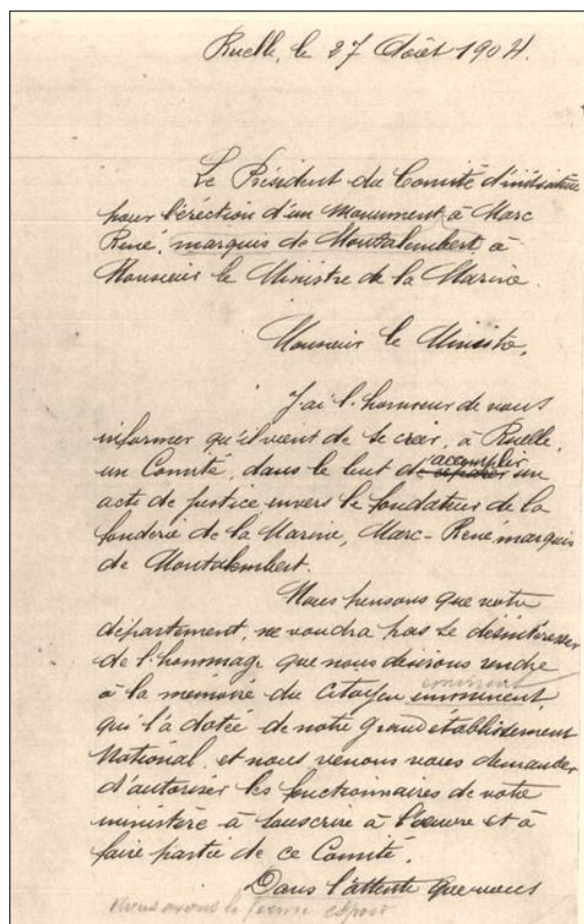 Ruelle, le 27 Août 1904.
Le Président du Comité d'initiative
pour l'érection d'un Monument à Marc
René, marquis de Montalembert à
Monsieur le Ministre de la Marine.
Monsieur le Ministre,
J'ai l'honneur de vous
informer qu'il vient de se créer, à Ruelle,
accomplir
un Comité, dans le but de réparer un
acte de justice envers le fondateur de la
fonderie de la Marine, Marc-René, marquis
de Montalembert.
Nous pensons que votre
département, ne voudra pas se désintéresser
de l'hommage que nous désirons rendre
éminent
à la mémoire du Citoyen emminent,
qui l'a dotée de notre Grand établissement
National, et nous venons vous demander
d'autoriser les fonctionnaires de votre
ministère à souscrire à l'œuvre et à
faire partie de ce Comité.
Dans l'attente que vous
Nous avons le ferme espoir